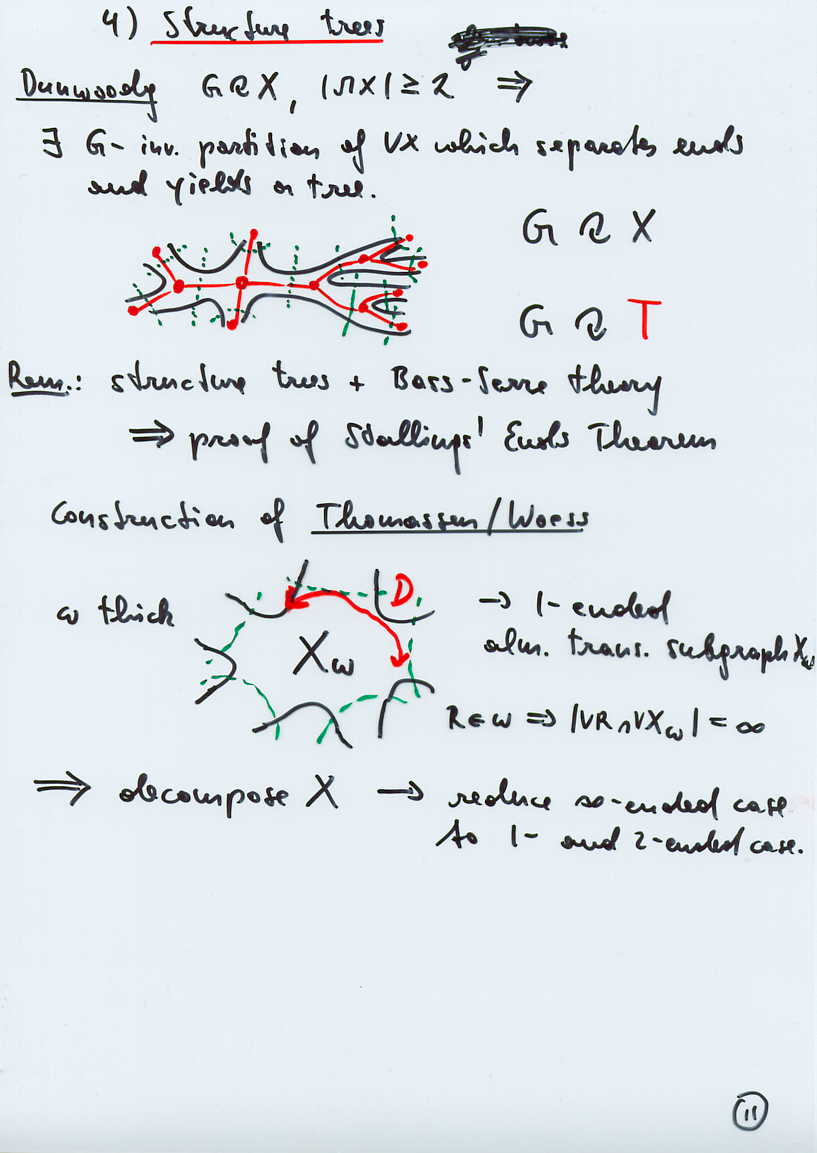 4) Structure trees
Dunwoody G ↻ X, |ΩX| ≥ 2 ⇒
∃ G-inv. partition of VX which separates ends
and yields a tree.
G ↻ X
G ↻ T
Rem.: structure trees + Bass-Serre theory
⇒ proof of Stallings' Ends Theorem
Construction of Thomassen/Woess
ω thick
D
Xω
→ 1-ended
alm. trans. subgraph Xω
R ∈ ω ⇒ |VR ∩ VXω| = ∞
⇒ decompose X → reduce ∞-ended case
to 1- and 2-ended case.
11